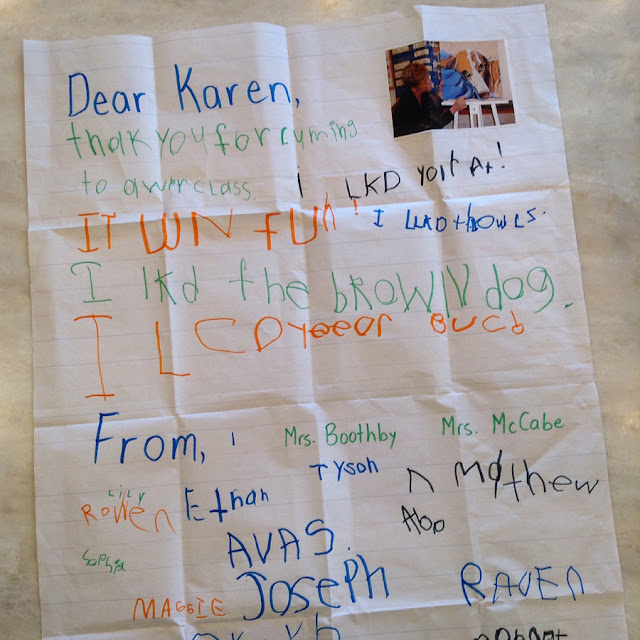 Dear Karen,
thak you for cuming
to awer class. I LKD yoir At!
IT WN FUN! I LIKD thOWLS.
I lkd the BROWN dog.
I LCD yeeor BUCb
From,
Mrs. Boothby Mrs. McCabe
Tyson Mathew
Lily
ROWEN Ethan
AVA S.
Sophia
JOSEPH RAVEN
MAGGIE